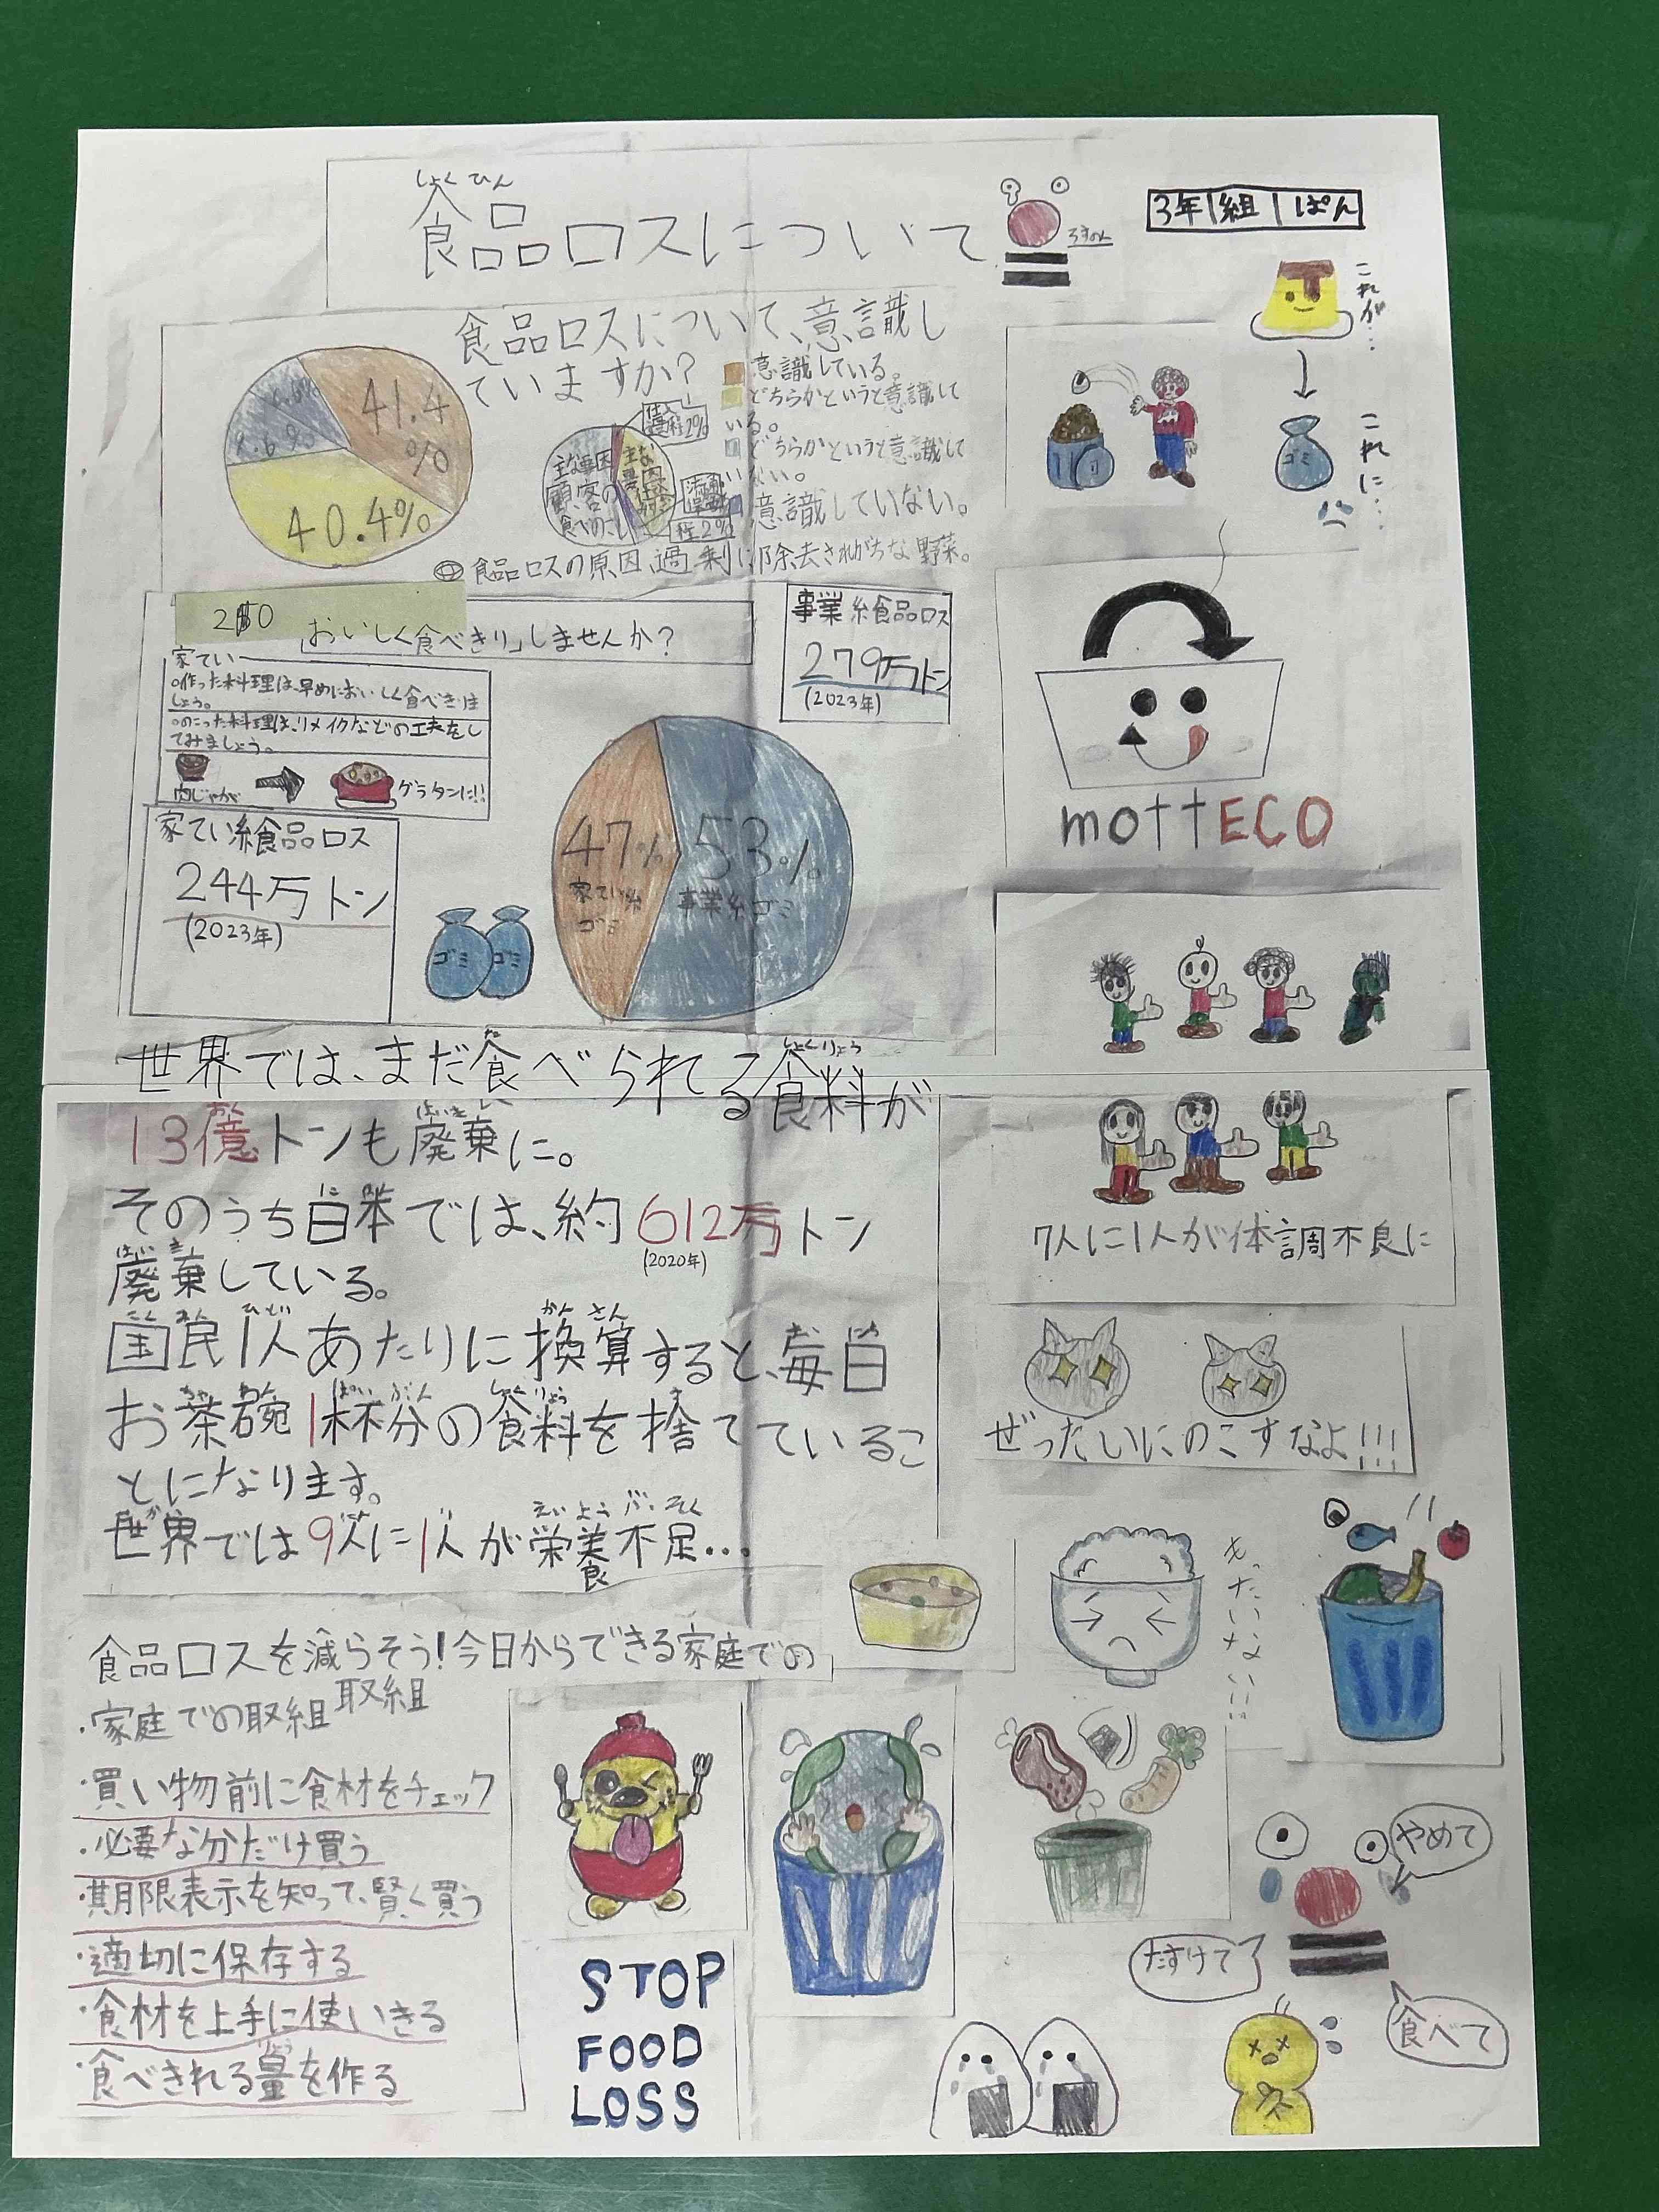 しょくひん
食品ロスについて
ろすのん
3年1組1ぱん
食品ロスについて、意識し
ていますか?
41.4
%
40.4%
9.6%
意識している。
どちらかというと意識して
いる。
どちらかというと意識して
いない。
意識していない。
主な要因
顧客の
食べのこし
主な
要因
程2%
◎食品ロスの原因、過剰に除去されがちな野菜。
これが…
ゴミ
これに…
「おいしく食べきり」しませんか?
家てい
○作った料理は、早めにおいしく食べきりま
しょう。
○のこった料理は、リメイクなどの工夫をし
てみましょう。
肉じゃが
グラタンに!!
事業系食品ロス
279万トン
(2023年)
家てい系食品ロス
244万トン
(2023年)
ゴミ ゴミ
47%
家てい系
ゴミ
53%
事業系ゴミ
mottECO
世界では、まだ食べられる食料が
13億トンも廃棄に。
そのうち日本では、約612万トン
(2020年)
廃棄している。
国民1人あたりに換算すると、毎日
お茶碗1杯分の食料を捨てているこ
とになります。
世界では9人に1人が栄養不足…
7人に1人が体調不良に
ぜったいにのこすなよ!!!
もったいない!!
食品ロスを減らそう!今日からできる家庭での
取組
・家庭での取組
・買い物前に食材をチェック
・必要な分だけ買う
・期限表示を知って、賢く買う
・適切に保存する
・食材を上手に使いきる
・食べきれる量を作る
STOP
FOOD
LOSS
やめて
たすけて
食べて